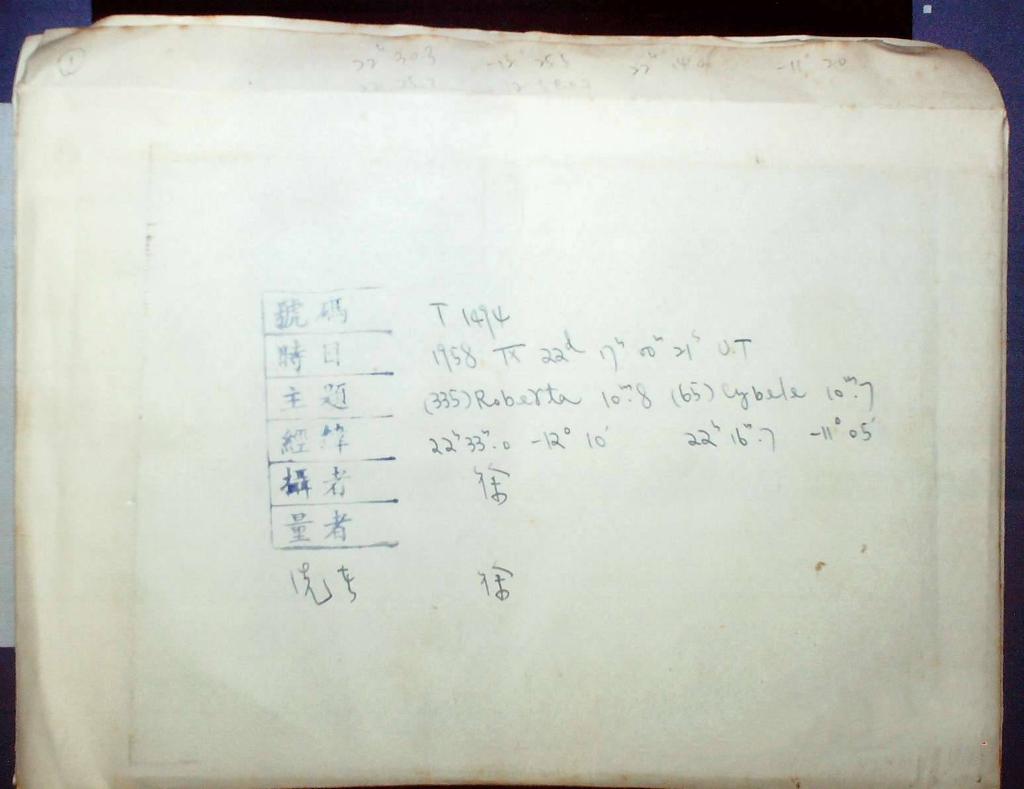 ①
22ʰ 30.3 -12° 25.5 22ʰ 14.0 -11° 20
號碼 T 1494
時日 1958 IX 22ᵈ 17ʰ 00ᵐ 21ˢ U.T
主題 (335) Roberta 10ᵐ.8 (65) Cybele 10ᵐ.7
經緯 22ʰ 33ᵐ.0 -12° 10′ 22ʰ 16ᵐ.7 -11° 05′
攝者 徐
量者
洗者 徐